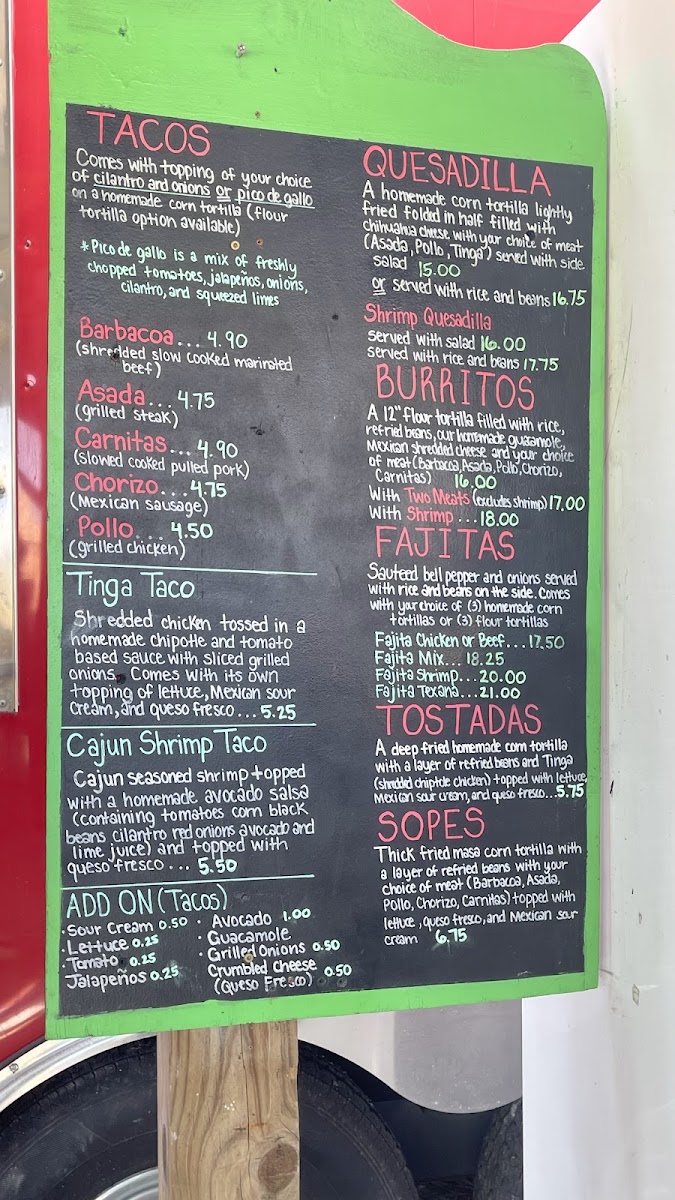 TACOS
Comes with topping of your choice
of cilantro and onions or pico de gallo
on a homemade corn tortilla (flour
tortilla option available)
*Pico de gallo is a mix of freshly
chopped tomatoes, jalapeños, onions,
cilantro, and squeezed limes
Barbacoa...4.90
(shredded slow cooked marinated
beef)
Asada...4.75
(grilled steak)
Carnitas...4.90
(slowed cooked pulled pork)
Chorizo...4.75
(Mexican sausage)
Pollo...4.50
(grilled chicken)
Tinga Taco
Shredded chicken tossed in a
homemade chipotle and tomato
based sauce with sliced grilled
onions. Comes with its own
topping of lettuce, Mexican sour
cream, and queso fresco...5.25
Cajun Shrimp Taco
Cajun seasoned shrimp topped
with a homemade avocado salsa
(containing tomatoes corn black
beans cilantro red onions avocado and
lime juice) and topped with
queso fresco... 5.50
ADD ON (Tacos)
·Sour Cream 0.50
·Lettuce 0.25
·Tomato 0.25
Jalapeños 0.25
· Avocado 1.00
· Guacamole
· Grilled Onions 0.50
Crumbled Cheese 0.50
(Queso Fresco)
QUESADILLA
A homemade corn tortilla lightly
fried folded in half filled with
chihuahua cheese with your choice of meat
(Asada, Pollo, Tinga) served with side
salad 15.00
or served with rice and beans 16.75
Shrimp Quesadilla
served with salad 16.00
served with rice and beans 17.75
BURRITOS
A 12" flour tortilla filled with rice,
refried beans, our homemade guacamole,
Mexican shredded cheese and your choice
of meat (Barbacoa, Asada, Pollo, Chorizo,
Carnitas) 16.00
With Two Meats (excludes shrimp) 17.00
With Shrimp...18.00
FAJITAS
Sauteed bell pepper and onions served
with rice and beans on the side. Comes
with your choice of (3) homemade corn
tortillas or (3) flour tortillas
Fajita Chicken or Beef...17.50
Fajita Mix...18.25
Fajita Shrimp...20.00
Fajita Texana...21.00
TOSTADAS
A deep fried homemade corn tortilla
with a layer of refried beans and Tinga
(shredded chipotle chicken) topped with lettuce,
Mexican sour cream, and queso fresco...5.75
SOPES
Thick fried masa corn tortilla with
a layer of refried beans with your
choice of meat (Barbacoa, Asada,
Pollo, Chorizo, Carnitas) topped with
lettuce, queso fresco, and Mexican sour
cream 6.75